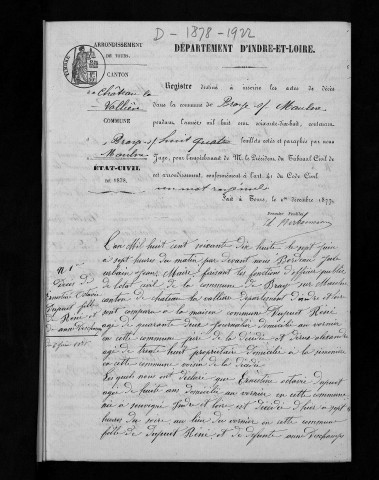 D - 1878-1922
ARRONDISSEMENT
DE TOURS.
CANTON
de Château la
Vallière
COMMUNE
de Braye s/
Maulne
ÉTAT-CIVIL
DE 1878.
DÉPARTEMENT D'INDRE-ET-LOIRE.
Registre destiné à inscrire les actes de décès
dans la commune de Braye s/ Maulne
pendant l'année mil huit cent soixante-dix-huit, contenant
quatre feuillets cotés et paraphés par nous
Juge, pour l'empêchement de M. le Président du Tribunal Civil de
cet arrondissement, conformément à l'art. 41 du Code Civil
Fait à Tours, le décembre 1877.
N. 1er
Décès de
Ernestine Octavie
Dupuet fille
de René et
de anne Deschamps
Juin 1878
L'an Mil huit cent soixante dix huit le sept juin
à sept heures du matin par devant nous Bordeau
urbain Jean, Maire, faisant les fonctions d'officier public
de l'état civil de la commune de Bray sur Maulne
canton de château la vallière Département d'indre et Loire
ont comparu à la maison commune Dupuet René
âgé de quarante deux journalier domicilié au vernier
en cette commune père de la Décédée et
âgé de trente huit propriétaire domicilié à la
en cette commune voisin de la Décédée
Lesquels nous ont déclaré que Ernestine octavie Dupuet
âgée de huit ans domiciliée au vernier en cette commune
née à souvigné Indre et loire est décédée d'hier à sept
heures du soir au lieu du vernier en cette commune
fille de Dupuet René et de défunte anne Deschamps